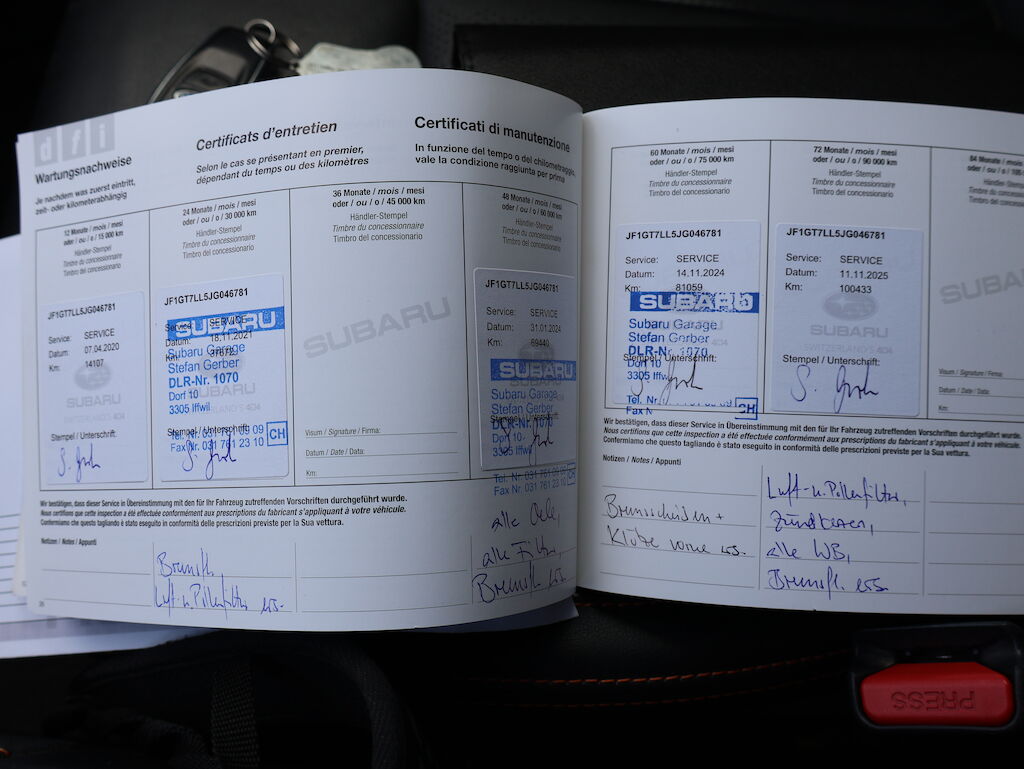 dfi
Wartungsnachweise
Je nachdem was zuerst eintritt,
zeit- oder kilometerabhängig
Certificats d'entretien
Selon le cas se présentant en premier,
dépendant du temps ou des kilomètres
Certificati di manutenzione
In funzione del tempo o del chilometraggio,
vale la condizione raggiunta per prima
12 Monate / mois / mesi
oder / ou / o / 15 000 km
Händler-Stempel
Timbre du concessionnaire
Timbro del concessionario
JF1GT7LL5JG046781
Service: SERVICE
Datum: 07.04.2020
Km: 14107
SUBARU
SWITZERLAND'S 4X4
Stempel / Unterschrift:
S. Gerber
24 Monate / mois / mesi
oder / ou / o / 30 000 km
Händler-Stempel
Timbre du concessionnaire
Timbro del concessionario
JF1GT7LL5JG046781
Service: SERVICE
SUBARU
Datum: 18.11.2021
Subaru Garage
Km:
Stefan Gerber
DLR-Nr. 1070
Dorf 10
3305 Iffwil
Stempel / Unterschrift:
Fax Nr. 031 761 23 10
CH
36 Monate / mois / mesi
oder / ou / o / 45 000 km
Händler-Stempel
Timbre du concessionnaire
Timbro del concessionario
SUBARU
Visum / Signature / Firma:
Datum / Date / Data:
Km:
48 Monate / mois / mesi
oder / ou / o / 60 000 km
Händler-Stempel
Timbre du concessionnaire
Timbro del concessionario
JF1GT7LL5JG046781
Service: SERVICE
Datum: 31.01.2024
Km: 69440
SUBARU
Subaru Garage
Stefan Gerber
DLR-Nr. 1070
Dorf 10
3305 Iffwil
Tel. Nr. 031 761 09 09
Fax Nr. 031 761 23 10
CH
Wir bestätigen, dass dieser Service in Übereinstimmung mit den für Ihr Fahrzeug zutreffenden Vorschriften durchgeführt wurde.
Nous certifions que cette inspection a été effectuée conformément aux prescriptions du fabricant s'appliquant à votre véhicule.
Confermiamo che questo tagliando è stato eseguito in conformità delle prescrizioni previste per la Sua vettura.
Notizen / Notes / Appunti
Bremsfl.
Luft- u. Pollenfilter ers.
alle Oele,
alle Filter,
Bremsfl. ers.
60 Monate / mois / mesi
oder / ou / o / 75 000 km
Händler-Stempel
Timbre du concessionnaire
Timbro del concessionario
JF1GT7LL5JG046781
Service: SERVICE
Datum: 14.11.2024
Km: 81059
SUBARU
Subaru Garage
Stefan Gerber
DLR-Nr. 1070
Stempel / Unterschrift:
Dorf 10
3305 Iffwil
Tel. Nr.
Fax N
CH
72 Monate / mois / mesi
oder / ou / o / 90 000 km
Händler-Stempel
Timbre du concessionnaire
Timbro del concessionario
JF1GT7LL5JG046781
Service: SERVICE
Datum: 11.11.2025
Km: 100433
SUBARU
SWITZERLAND'S 4X4
Stempel / Unterschrift:
S. Gerber
84 Monate / mois
oder / ou / o / 105
Händler-St
Timbre du conce
Timbro del conce
SUBARU
Visum / Signature / Firma:
Datum / Date / Data:
Km:
Wir bestätigen, dass dieser Service in Übereinstimmung mit den für Ihr Fahrzeug zutreffenden Vorschriften durchgeführt wurde.
Nous certifions que cette inspection a été effectuée conformément aux prescriptions du fabricant s'appliquant à votre véhicule.
Confermiamo che questo tagliando è stato eseguito in conformità delle prescrizioni previste per la Sua vettura.
Notizen / Notes / Appunti
Bremsscheiben +
Klötze vorne ers.
Luft- u. Pollenfilter,
Zündkerzen,
alle WB,
Bremsfl. ers.
PRESS